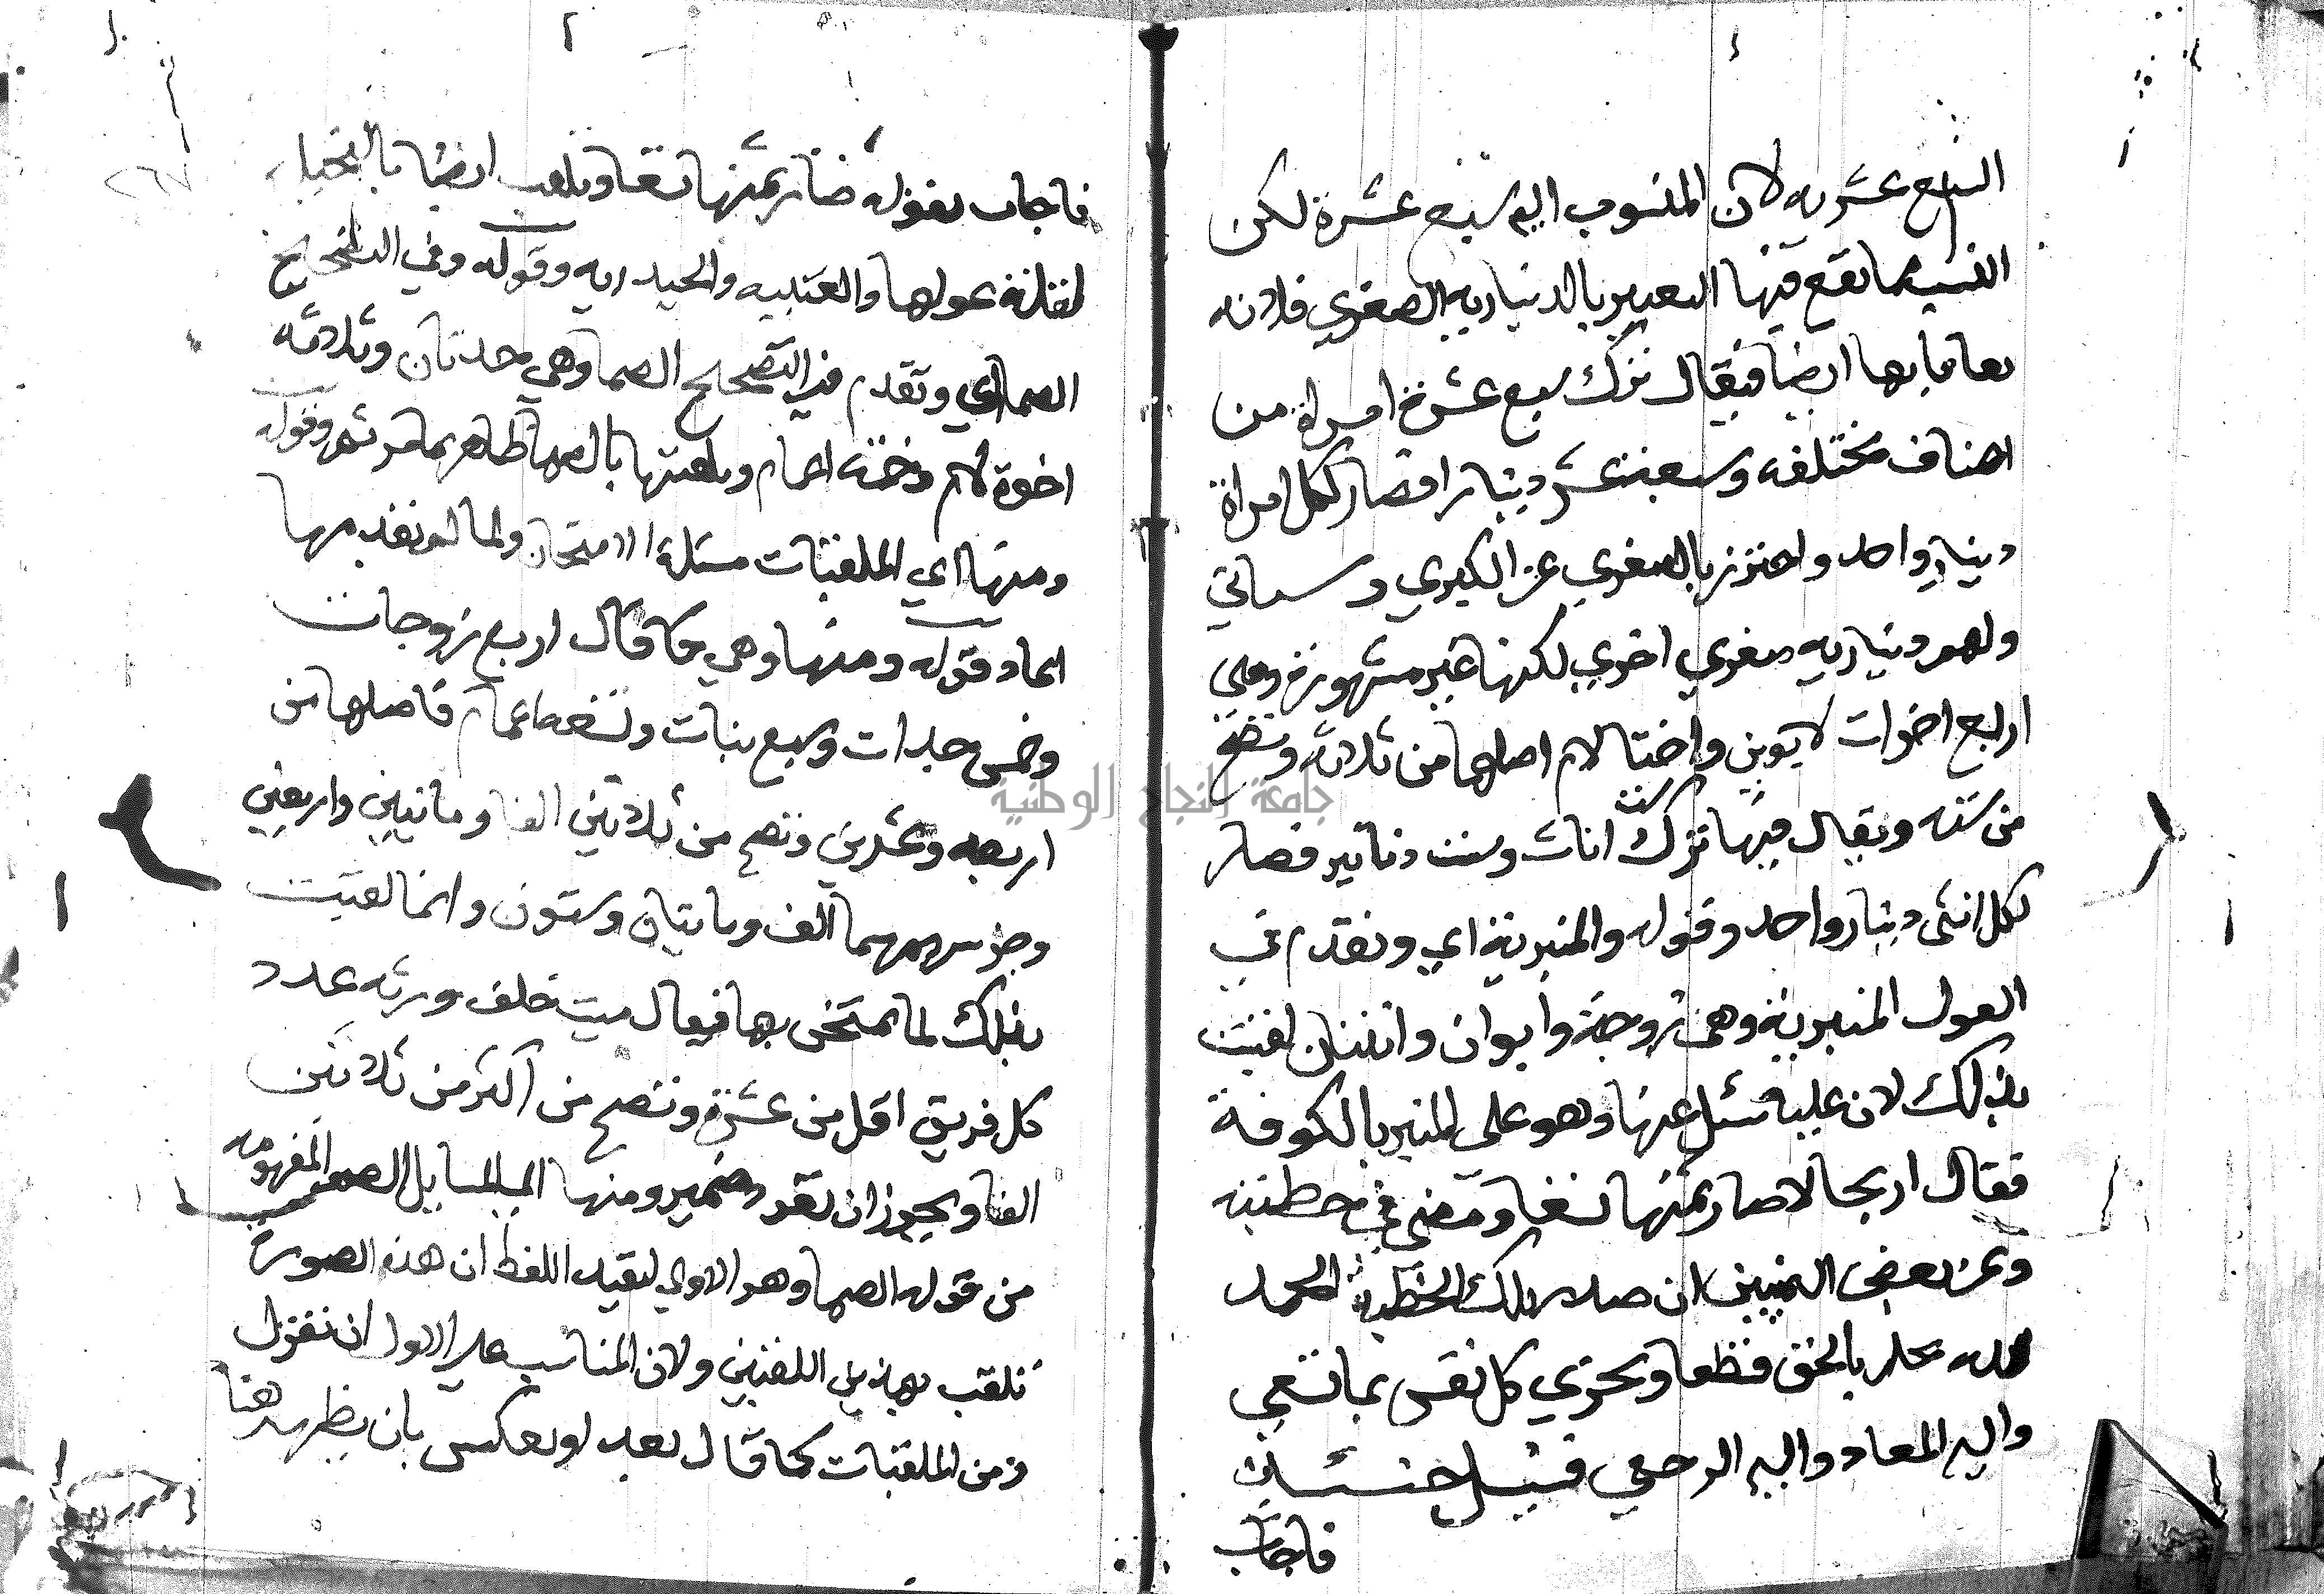 السبع عشريه لان المنسوب اليه سبع عشرة لكن
النسبه ما تقع فيها التعبير بالديناريه الصغري فلانه
يعايا بها ايضا فيقال ترك سبع عشرة امراة من
اصناف مختلفه وسبعة عشر دينارا فصار لكل امراة
دينار واحد واحترز بالصغري عن الكبري وسياتي
ولهم ديناريه صغري اخري لكنها غير مشهورة وهي
اربع اخوات لابوين واختا لام اصلها من ثلاثه وتصح
من سته ويقال فيها ترك ست اناث وست دنانير فصار
لكل انثى دينار واحد وقوله والمنبرية اي وتقدم في
العول المنبرية وهي زوجة وابوان وابنتان لقبت
بذلك لان عليا سئل عنها وهو على المنبر بالكوفة
فقال ارتجالا صار ثمنها تسعا ومضى في خطبته
وعن بعض ان صدر تلك الخطبة الحمد
لله بالحق قطعا ويجزي كل نفس بما تسعي
واليه المعاد واليه الرجعي فسئل حينئذ
فاجاب
٢٦٧
فاجاب بقوله صار ثمنها تسعا وتلقب ايضا بالبخيلة
لقلة عولها والحيدريه وقوله وفي التصحيح
الصما اي وتقدم في التصحيح الصما وهي جدتان وثلاثه
اخوة لام وخمسة اعمام وتلقيبها بالصما ظاهر مما مر ثم وقوله
ومنها اي الملقبات مسئلة الامتحان ولما لم تقدمها
اعاد قوله ومنها وهي كما قال اربع زوجات
وخمس جدات وسبع بنات وتسعه اعمام فاصلها من
اربعه وعشرين وتصح من ثلاثين الفا ومائتين واربعين
وجزء سهمها الف ومائتان وستون وانما لقبت
بذلك لما يمتحن بها فيقال ميت خلف ورثه عدد
كل فريق اقل من عشرة وتصح من اكثر من ثلاثين
الفا ويجوز ان يعود ضمير ومنها الي المسايل الصم المفهومه
من قوله الصما وهو الاولي ليفيد اللفظ ان هذه الصورة
تلقب بهذين اللقبين ولان المناسب على الاول ان تقول
ومن الملقبات كما قال بعد او يعكس بان يظهر هنا
جامعة النجاح الوطنية